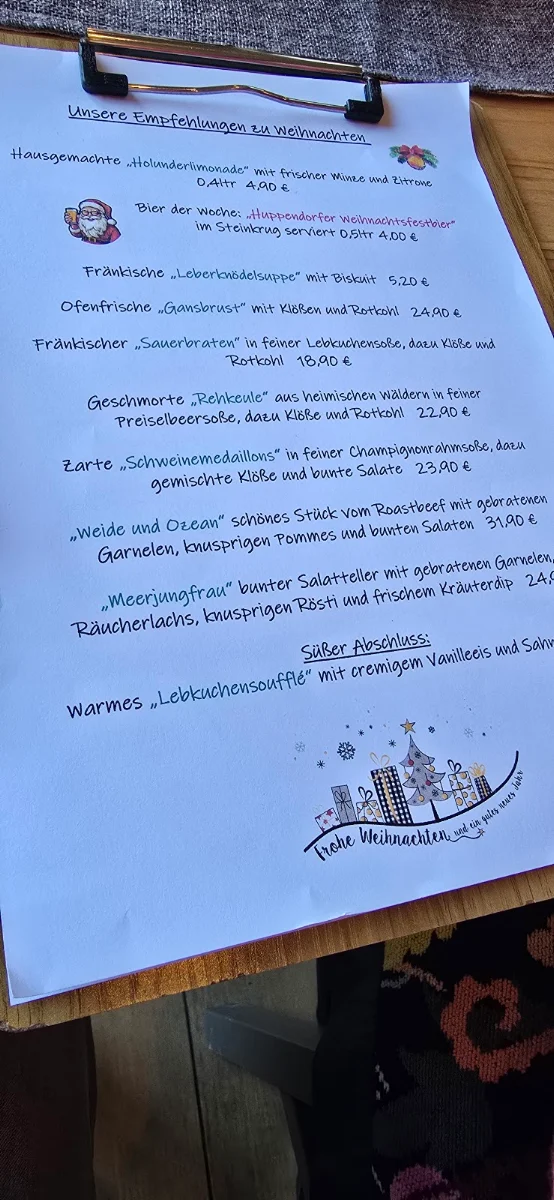 Unsere Empfehlungen zu Weihnachten
Hausgemachte „Holunderlimonade“ mit frischer Minze und Zitrone
0,4ltr 4,90 €
Bier der Woche: „Huppendorfer Weihnachtsfestbier“
im Steinkrug serviert 0,5ltr 4,00 €
Fränkische „Leberknödelsuppe“ mit Biskuit 5,20 €
Ofenfrische „Gansbrust“ mit Klößen und Rotkohl 24,90 €
Fränkischer „Sauerbraten“ in feiner Lebkuchensoße, dazu Klöße und
Rotkohl 18,90 €
Geschmorte „Rehkeule“ aus heimischen Wäldern in feiner
Preiselbeersoße, dazu Klöße und Rotkohl 22,90 €
Zarte „Schweinemedaillons“ in feiner Champignonrahmsoße, dazu
gemischte Klöße und bunte Salate 23,90 €
„Weide und Ozean“ schönes Stück vom Roastbeef mit gebratenen
Garnelen, knusprigen Pommes und bunten Salaten 31,90 €
„Meerjungfrau“ bunter Salatteller mit gebratenen Garnelen,
Räucherlachs, knusprigen Rösti und frischem Kräuterdip 24,
Süßer Abschluss:
Warmes „Lebkuchensoufflé“ mit cremigem Vanilleeis und
Frohe Weihnachten und ein gutes neues Jahr